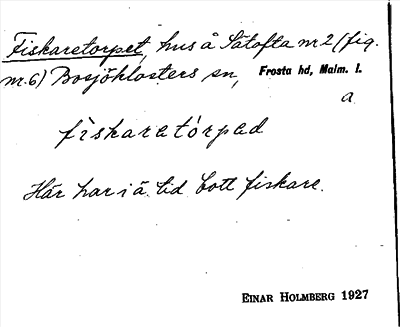 Fiskaretorpet, hus å Sätofta nr 2 (fig.
nr. 6) Bosjöklosters sn, Frosta hd, Malm. l.
a
fìskaretórpəd
Här har i ä. tid bott fiskare.
EINAR HOLMBERG 1927